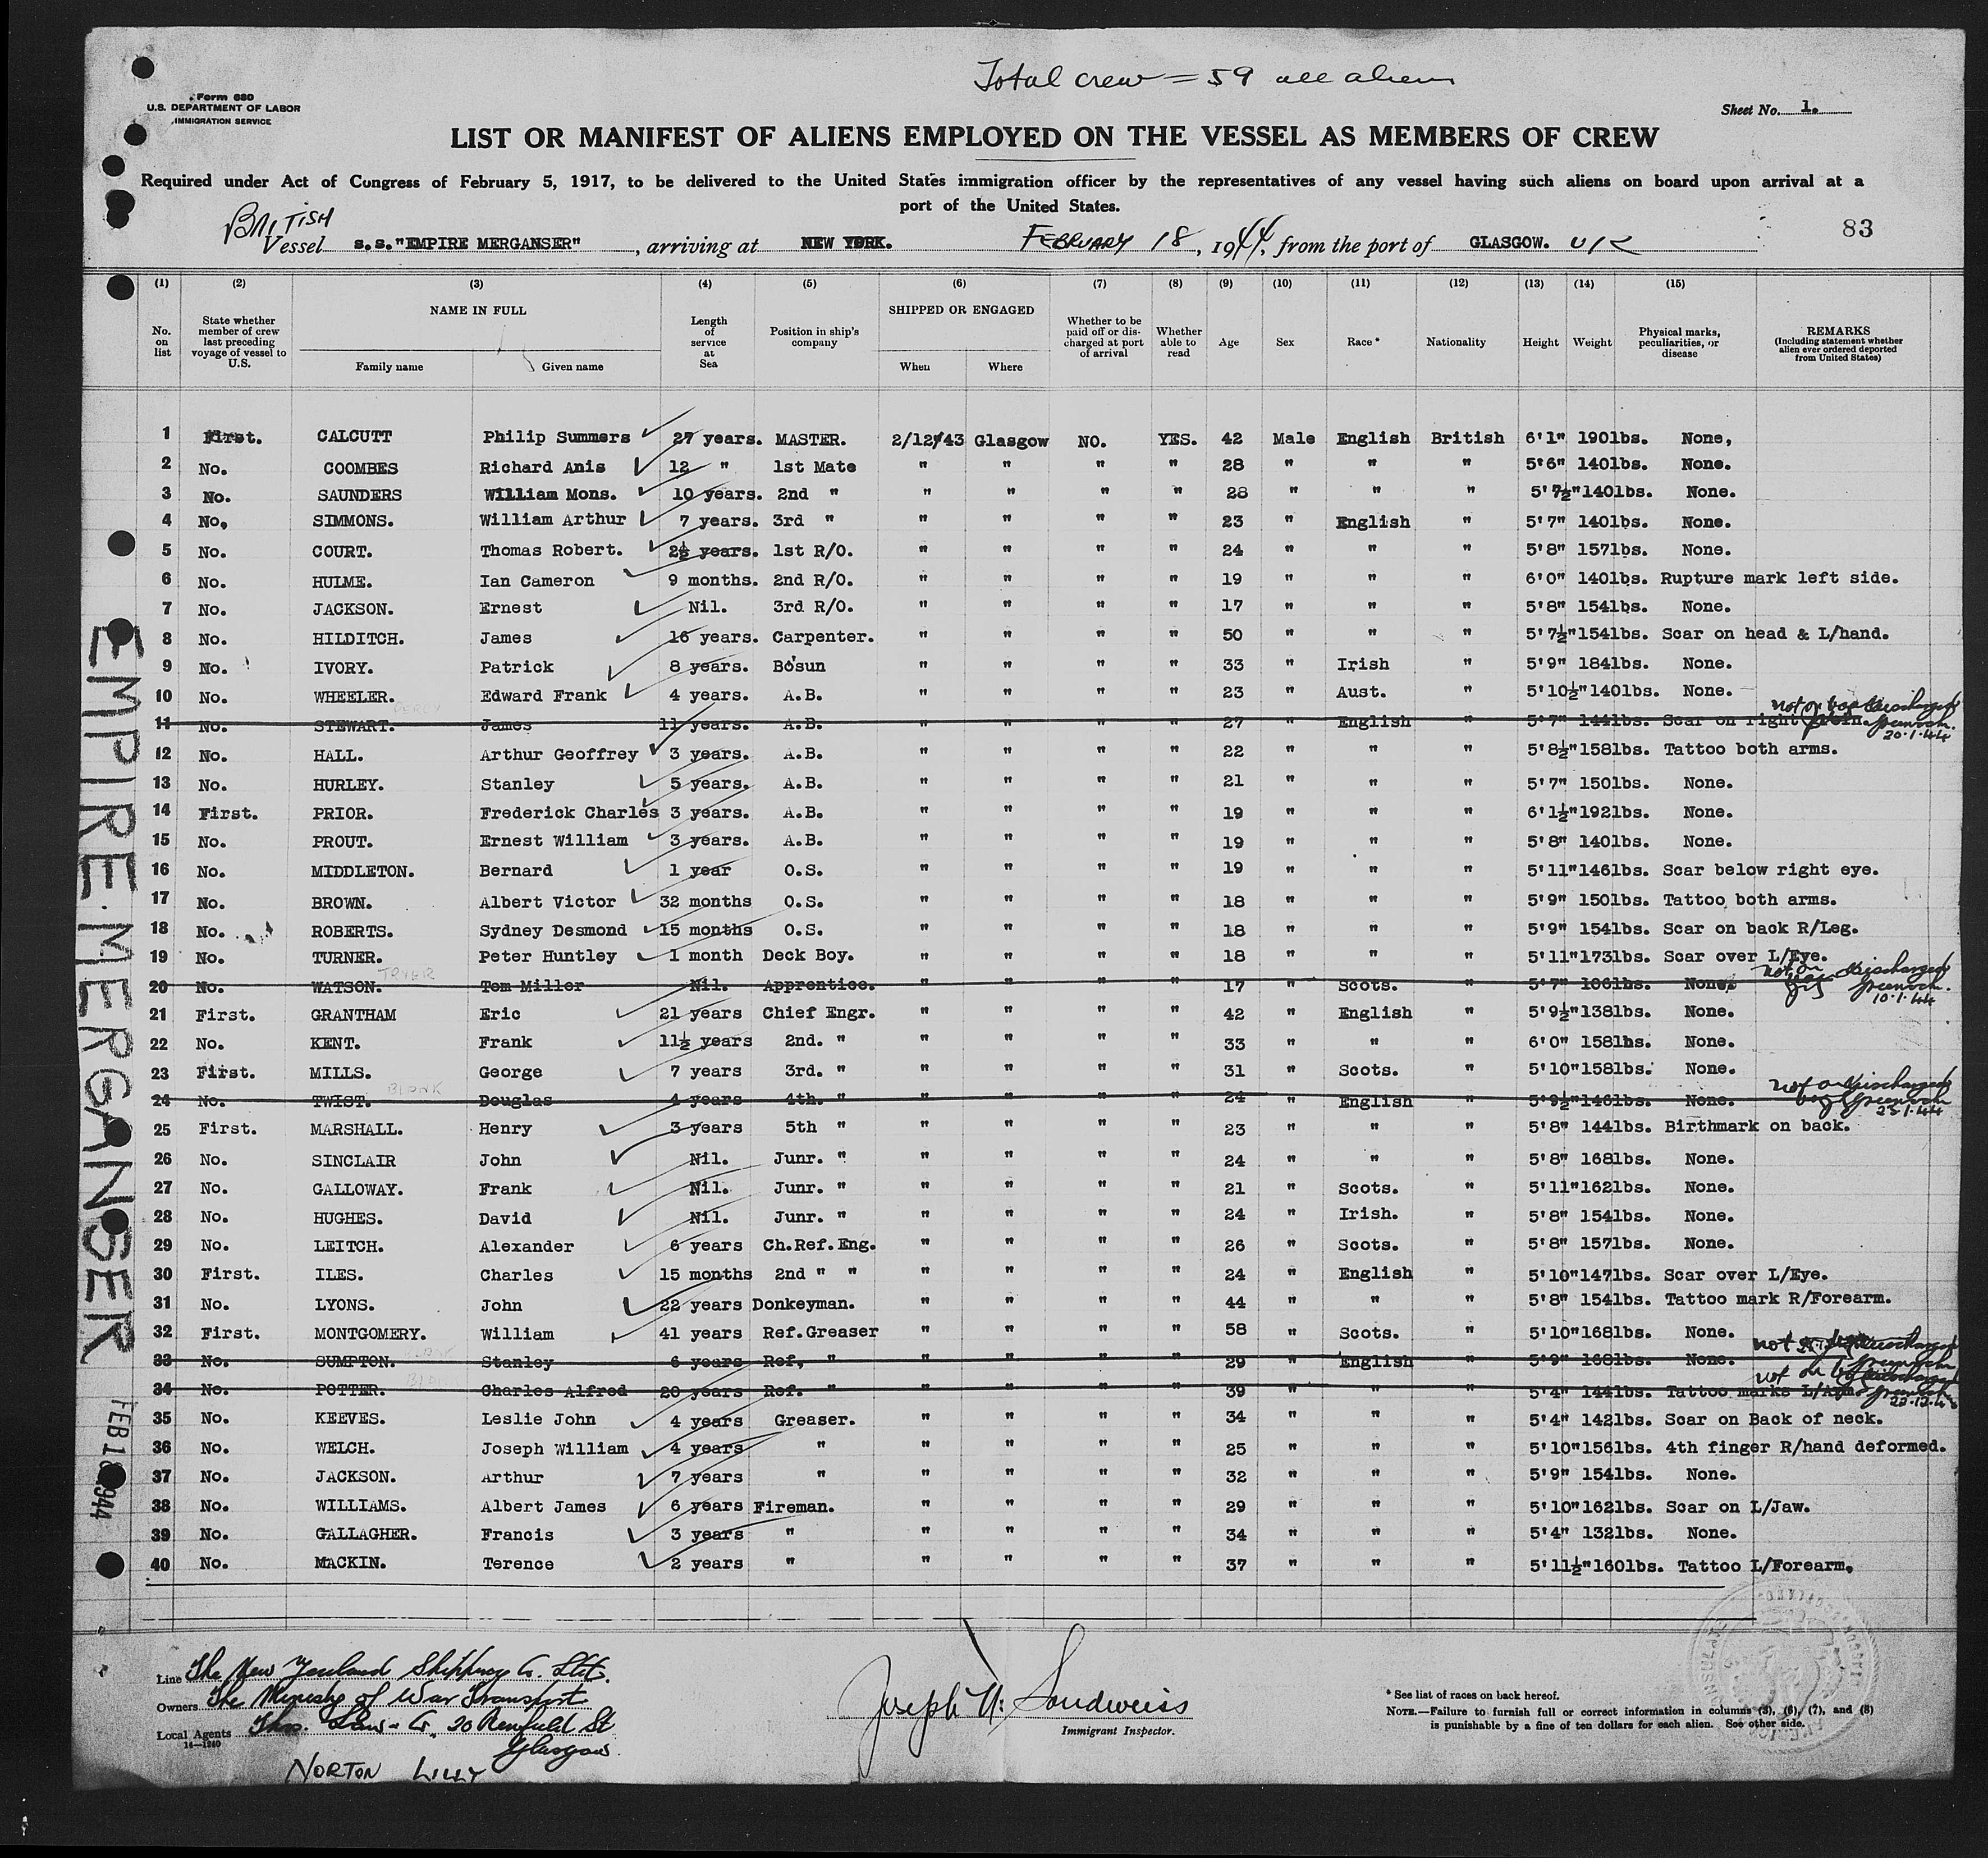 Total crew = 59 all aliens
Form 680
U.S. DEPARTMENT OF LABOR
IMMIGRATION SERVICE
Sheet No. 1.
LIST OR MANIFEST OF ALIENS EMPLOYED ON THE VESSEL AS MEMBERS OF CREW
Required under Act of Congress of February 5, 1917, to be delivered to the United States immigration officer by the representatives of any vessel having such aliens on board upon arrival at a
port of the United States.
BRITISH
Vessel s.s."EMPIRE MERGANSER", arriving at NEW YORK. FEBRUARY 18, 1944, from the port of GLASGOW. U K
83
(1) (2) (3) (4) (5) (6) (7) (8) (9) (10) (11) (12) (13) (14) (15)
No. on list | State whether member of crew last preceding voyage of vessel to U.S. | NAME IN FULL Family name Given name | Length of service at Sea | Position in ship's company | SHIPPED OR ENGAGED When Where | Whether to be paid off or discharged at port of arrival | Whether able to read | Age | Sex | Race* | Nationality | Height | Weight | Physical marks, peculiarities, or disease | REMARKS (Including statement whether alien ever ordered deported from United States)
1 First. CALCUTT Philip Summers 27 years. MASTER. 2/12/43 Glasgow NO. YES. 42 Male English British 6'1" 190lbs. None,
2 No. COOMBES Richard Anis 12 " 1st Mate " " " " 28 " " " 5'6" 140lbs. None.
3 No. SAUNDERS William Mons. 10 years. 2nd " " " " " 28 " " " 5'7½" 140lbs. None.
4 No. SIMMONS. William Arthur 7 years. 3rd " " " " " 23 " English " 5'7" 140lbs. None.
5 No. COURT. Thomas Robert. 2½ years. 1st R/O. " " " " 24 " " " 5'8" 157lbs. None.
6 No. HULME. Ian Cameron 9 months. 2nd R/O. " " " " 19 " " " 6'0" 140lbs. Rupture mark left side.
7 No. JACKSON. Ernest Nil. 3rd R/O. " " " " 17 " " " 5'8" 154lbs. None.
8 No. HILDITCH. James 16 years. Carpenter. " " " " 50 " " " 5'7½" 154lbs. Scar on head & L/hand.
9 No. IVORY. Patrick 8 years. Bo'sun " " " " 33 " Irish " 5'9" 184lbs. None.
10 No. WHEELER. Edward Frank 4 years. A.B. " " " " 23 " Aust. " 5'10½" 140lbs. None.
11 No. STEWART. James 11 years. A.B. " " " " 27 " English " 5'7" 144lbs. Scar on right not on board discharged Greenock 20.1.44
12 No. HALL. Arthur Geoffrey 3 years. A.B. " " " " 22 " " " 5'8½" 158lbs. Tattoo both arms.
13 No. HURLEY. Stanley 5 years. A.B. " " " " 21 " " " 5'7" 150lbs. None.
14 First. PRIOR. Frederick Charles 3 years. A.B. " " " " 19 " " " 6'1½" 192lbs. None.
15 No. PROUT. Ernest William 3 years. A.B. " " " " 19 " " " 5'8" 140lbs. None.
16 No. MIDDLETON. Bernard 1 year O.S. " " " " 19 " " " 5'11" 146lbs. Scar below right eye.
17 No. BROWN. Albert Victor 32 months O.S. " " " " 18 " " " 5'9" 150lbs. Tattoo both arms.
18 No. ROBERTS. Sydney Desmond 15 months O.S. " " " " 18 " " " 5'9" 154lbs. Scar on back R/Leg.
19 No. TURNER. Peter Huntley 1 month Deck Boy. " " " " 18 " " " 5'11" 173lbs. Scar over L/Eye.
20 No. WATSON. Tom Miller Nil. Apprentice. " " " " 17 " Scots. " 5'7" 106lbs. None. not on discharged Greenock. 10.1.44
21 First. GRANTHAM Eric 21 years Chief Engr. " " " " 42 " English " 5'9½" 138lbs. None.
22 No. KENT. Frank 11½ years 2nd. " " " " " 33 " " " 6'0" 158lbs. None.
23 First. MILLS. George 7 years 3rd. " " " " " 31 " Scots. " 5'10" 158lbs. None.
24 No. TWIST. Douglas 4 years 4th. " " " " " 24 " English " 5'9½" 146lbs. None. not on discharged Greenock
25 First. MARSHALL. Henry 3 years 5th " " " " " 23 " " " 5'8" 144lbs. Birthmark on back.
26 No. SINCLAIR John Nil. Junr. " " " " " 24 " " " 5'8" 168lbs. None.
27 No. GALLOWAY. Frank Nil. Junr. " " " " " 21 " Scots. " 5'11" 162lbs. None.
28 No. HUGHES. David Nil. Junr. " " " " " 24 " Irish. " 5'8" 154lbs. None.
29 No. LEITCH. Alexander 6 years Ch.Ref.Eng. " " " " 26 " Scots. " 5'8" 157lbs. None.
30 First. ILES. Charles 15 months 2nd " " " " " " 24 " English " 5'10" 147lbs. Scar over L/Eye.
31 No. LYONS. John 22 years Donkeyman. " " " " 44 " " " 5'8" 154lbs. Tattoo mark R/Forearm.
32 First. MONTGOMERY. William 41 years Ref.Greaser " " " " 58 " Scots. " 5'10" 168lbs. None.
33 No. SUMPTON. Stanley 6 years Ref, " " " " " 29 " English " 5'9" 168lbs. None. not discharged Greenock
34 No. POTTER. Charles Alfred 20 years Ref. " " " " " 39 " " " 5'4" 144lbs. Tattoo marks L/Arm. not on discharged Greenock
35 No. KEEVES. Leslie John 4 years Greaser. " " " " 34 " " " 5'4" 142lbs. Scar on Back of neck.
36 No. WELCH. Joseph William 4 years " " " " " 25 " " " 5'10" 156lbs. 4th finger R/hand deformed.
37 No. JACKSON. Arthur 7 years " " " " " 32 " " " 5'9" 154lbs. None.
38 No. WILLIAMS. Albert James 6 years Fireman. " " " " 29 " " " 5'10" 162lbs. Scar on L/Jaw.
39 No. GALLAGHER. Francis 3 years " " " " " 34 " " " 5'4" 132lbs. None.
40 No. MACKIN. Terence 2 years " " " " " 37 " " " 5'11½" 160lbs. Tattoo L/Forearm.
EMPIRE MERGANSER
FEB 18 1944
Line The New Zealand Shipping Co. Ltd.
Owners The Ministry of War Transport
Local Agents Thos. Law & Co. 20 Renfield St
Glasgow.
14—1240
NORTON LILLY
Joseph N. Sandweiss
Immigrant Inspector.
* See list of races on back hereof.
NOTE.—Failure to furnish full or correct information in columns (3), (6), (7), and (8)
is punishable by a fine of ten dollars for each alien. See other side.